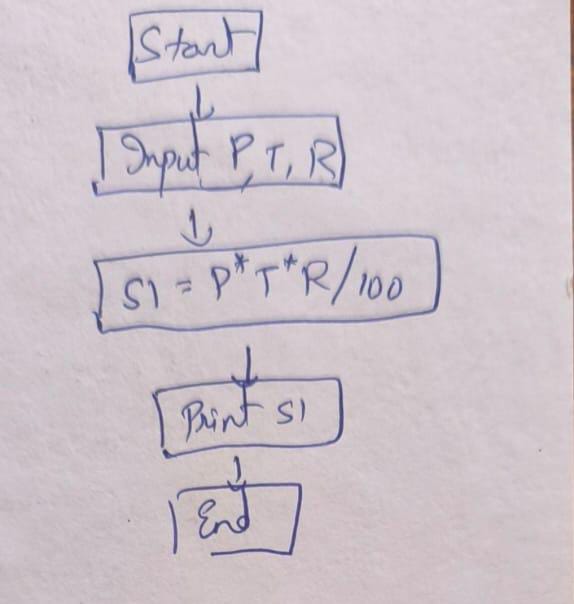 Start
Input P, T, R
SI = P*T*R/100
Print SI
End